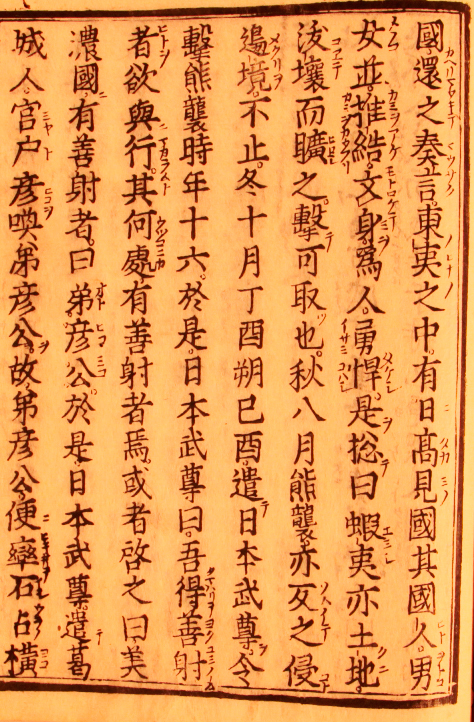 國還之奏言東夷之中有日髙見國其國人男
女並椎結文身爲人勇悍是捴曰蝦夷亦土地
沃壤而曠之擊可取也秋八月熊襲亦反之侵
邊境不止冬十月丁酉朔己酉遣日本武尊令
擊熊襲時年十六於是日本武尊曰吾得善射
者欲與行其何處有善射者焉或者啓之曰美
濃國有善射者曰弟彦公於是日本武尊遣葛
城人宮戸彦喚弟彦公故弟彦公便率石占橫